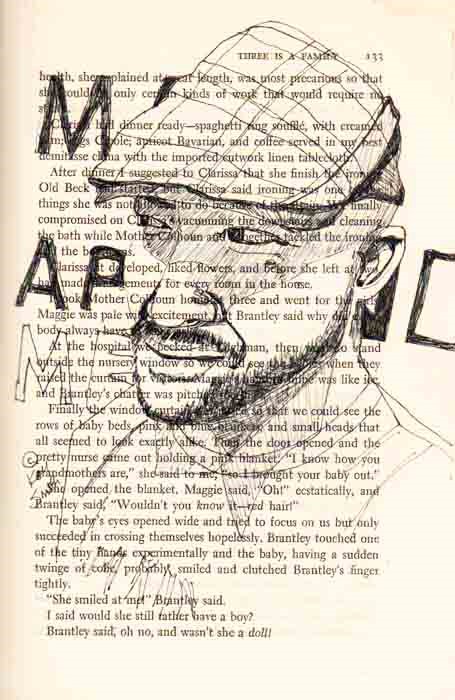 THREE IS A FAMILY 133
health, she explained at great length, was most precarious so that
she could only certain kinds of work that would require no
had dinner ready—spaghetti ring soufflé, with creamed
apricot Bavarian, and coffee served in my best
demitasse china with the imported cutwork linen tablecloth.
After dinner I suggested to Clarissa that she finish the ironing
Old Beck had started, but Clarissa said ironing was one
things she was not allowed to do because of the finally
compromised on Clarissa's vacuuming the downstairs and cleaning
the bath while Mother Calhoun and I together tackled the ironing
the
Clarissa, it developed, liked flowers, and before she left at two
had made arrangements for every room in the house.
took Mother Calhoun home at three and went for the girls
Maggie was pale with excitement, but Brantley said why did
body always have
At the hospital we then to stand
outside the nursery window so we could see the when they
raised the curtain for Maggie's was like ice
and Brantley's was
Finally the window so that we could see the
rows of baby beds, pink and blue blankets, and small heads that
all seemed to look exactly alike. Then the door opened and the
pretty nurse came out holding a pink blanket. "I know how you
grandmothers are," she said to me, "so I brought your baby out."
She opened the blanket. Maggie said, "Oh!" ecstatically, and
Brantley said, "Wouldn't you know it—red hair!"
The baby's eyes opened wide and tried to focus on us but only
succeeded in crossing themselves hopelessly. Brantley touched one
of the tiny hands experimentally and the baby, having a sudden
twinge of colic, probably, smiled and clutched Brantley's finger
tightly.
"She smiled at me!" Brantley said.
I said would she still rather have a boy?
Brantley said, oh no, and wasn't she a doll!
M
AP
N
©